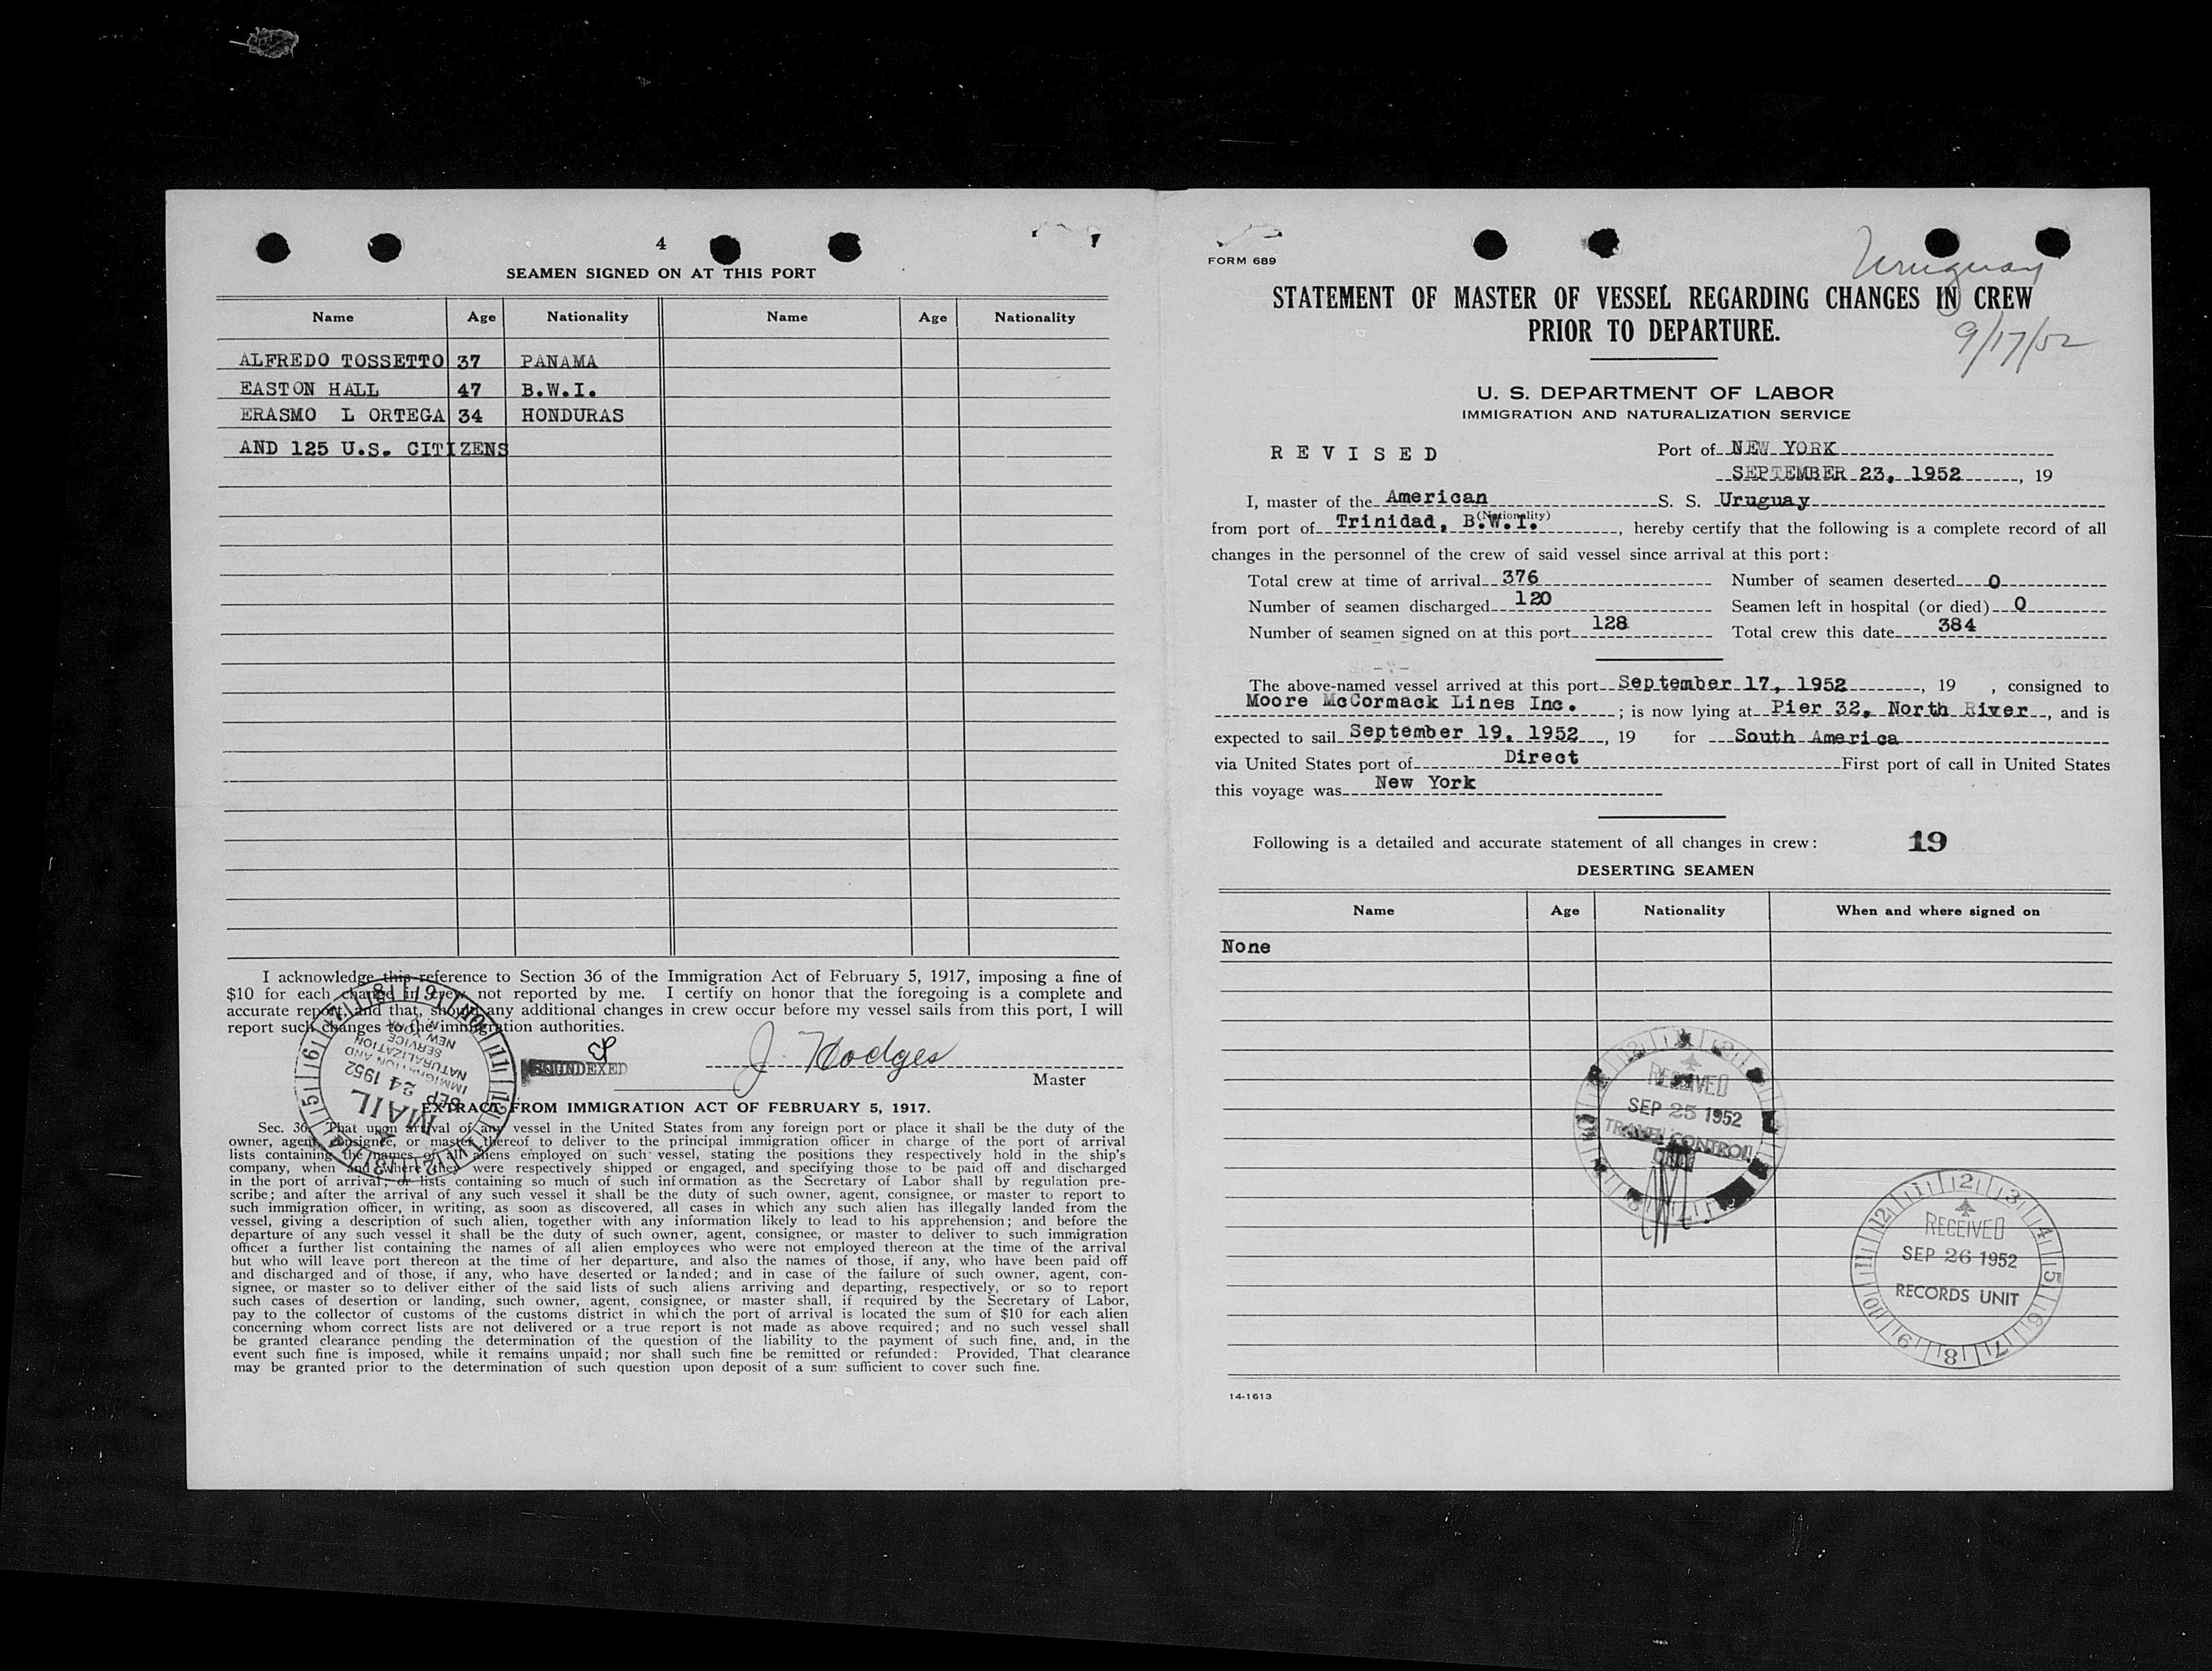 4
SEAMEN SIGNED ON AT THIS PORT
Name Age Nationality Name Age Nationality
ALFREDO TOSSETTO 37 PANAMA
EASTON HALL 47 B.W.I.
ERASMO L ORTEGA 34 HONDURAS
AND 125 U.S. CITIZENS
I acknowledge this reference to Section 36 of the Immigration Act of February 5, 1917, imposing a fine of
$10 for each change in crew not reported by me. I certify on honor that the foregoing is a complete and
accurate report, and that, should any additional changes in crew occur before my vessel sails from this port, I will
report such changes to the immigration authorities.
SOUNDEXED
J. Hodges
Master
MAIL
SEP 24 1952
IMMIGRATION AND
NATURALIZATION
SERVICE
NEW YORK
EXTRACT FROM IMMIGRATION ACT OF FEBRUARY 5, 1917.
Sec. 36. That upon arrival of any vessel in the United States from any foreign port or place it shall be the duty of the
owner, agent, consignee, or master thereof to deliver to the principal immigration officer in charge of the port of arrival
lists containing the names of all aliens employed on such vessel, stating the positions they respectively hold in the ship's
company, when and where they were respectively shipped or engaged, and specifying those to be paid off and discharged
in the port of arrival; or lists containing so much of such information as the Secretary of Labor shall by regulation pre-
scribe; and after the arrival of any such vessel it shall be the duty of such owner, agent, consignee, or master to report to
such immigration officer, in writing, as soon as discovered, all cases in which any such alien has illegally landed from the
vessel, giving a description of such alien, together with any information likely to lead to his apprehension; and before the
departure of any such vessel it shall be the duty of such owner, agent, consignee, or master to deliver to such immigration
officer a further list containing the names of all alien employees who were not employed thereon at the time of the arrival
but who will leave port thereon at the time of her departure, and also the names of those, if any, who have been paid off
and discharged and of those, if any, who have deserted or landed; and in case of the failure of such owner, agent, con-
signee, or master so to deliver either of the said lists of such aliens arriving and departing, respectively, or so to report
such cases of desertion or landing, such owner, agent, consignee, or master shall, if required by the Secretary of Labor,
pay to the collector of customs of the customs district in which the port of arrival is located the sum of $10 for each alien
concerning whom correct lists are not delivered or a true report is not made as above required; and no such vessel shall
be granted clearance pending the determination of the question of the liability to the payment of such fine, and, in the
event such fine is imposed, while it remains unpaid; nor shall such fine be remitted or refunded: Provided, That clearance
may be granted prior to the determination of such question upon deposit of a sum sufficient to cover such fine.
FORM 689
Uruguay
STATEMENT OF MASTER OF VESSEL REGARDING CHANGES IN CREW
PRIOR TO DEPARTURE.
9/17/52
U. S. DEPARTMENT OF LABOR
IMMIGRATION AND NATURALIZATION SERVICE
REVISED Port of NEW YORK
SEPTEMBER 23, 1952, 19
I, master of the American S. S. Uruguay
(Nationality)
from port of Trinidad, B.W.I., hereby certify that the following is a complete record of all
changes in the personnel of the crew of said vessel since arrival at this port:
Total crew at time of arrival 376 Number of seamen deserted 0
Number of seamen discharged 120 Seamen left in hospital (or died) 0
Number of seamen signed on at this port 128 Total crew this date 384
The above-named vessel arrived at this port September 17, 1952, 19 , consigned to
Moore McCormack Lines Inc.; is now lying at Pier 32, North River, and is
expected to sail September 19, 1952, 19 for South America
via United States port of Direct First port of call in United States
this voyage was New York
Following is a detailed and accurate statement of all changes in crew: 19
DESERTING SEAMEN
Name Age Nationality When and where signed on
None
RECEIVED
SEP 25 1952
TRAVEL CONTROL
UNIT
RECEIVED
SEP 26 1952
RECORDS UNIT
14-1613